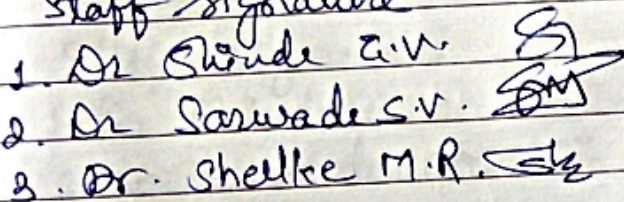 Staff Signature
1. Dr Shinde G.V.
2. Dr Sarwade S.V.
3. Dr. Shelke M.R.